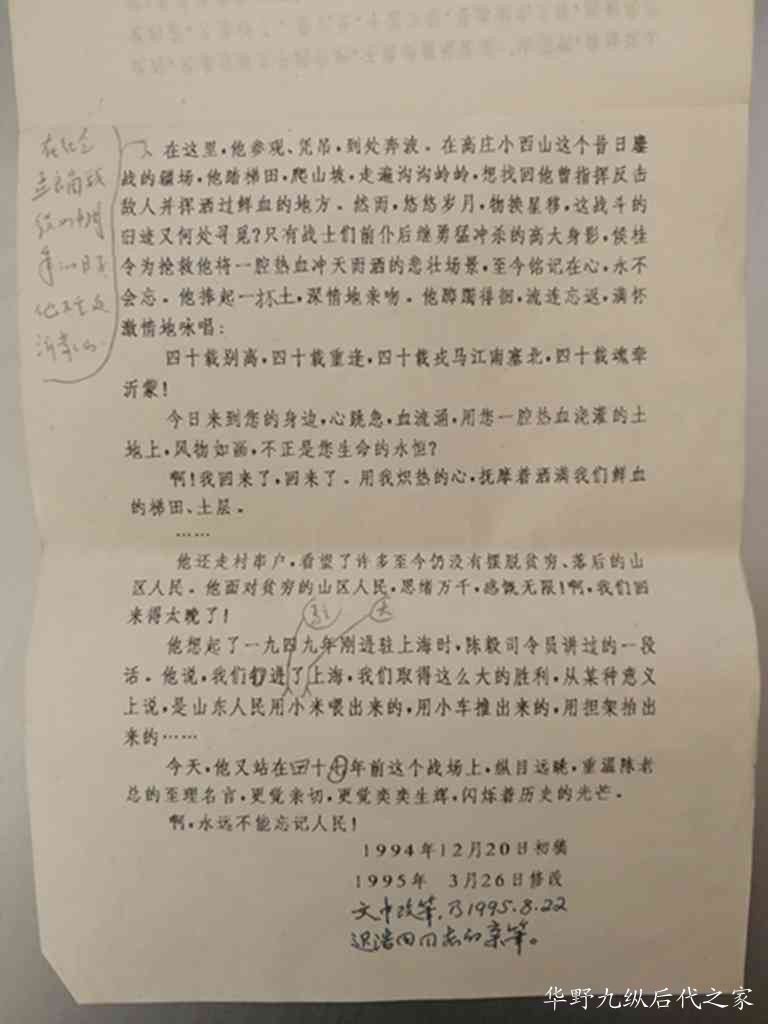 在这里，他参观、凭吊，到处奔波。在高庄小西山这个昔日鏖
战的疆场，他踏梯田，爬山坡，走遍沟沟岭岭，想找回他曾指挥反击
敌人并挥洒过鲜血的地方。然而，悠悠岁月，物换星移，这战斗的
旧迹又何处寻觅？只有战士们前仆后继勇猛冲杀的高大身影，侯桂
令为抢救他将一腔热血冲天而洒的悲壮场景，至今铭记在心，永不
会忘。他捧起一抔土，深情地亲吻。他踯躅徘徊，流连忘返，满怀
激情地咏唱：
四十载别离，四十载重逢，四十载戎马江南塞北，四十载魂牵
沂蒙！
今日来到您的身边，心跳急，血流涌，用您一腔热血浇灌的土
地上，风物如画，不正是您生命的永恒？
啊！我回来了，回来了。用我炽热的心，抚摩着洒满我们鲜血
的梯田、土层。
……
他还走村串户，看望了许多至今仍没有摆脱贫穷、落后的山
区人民。他面对贫穷的山区人民，思绪万千，感慨无限！啊，我们回
来得太晚了！
他想起了一九四九年刚进驻上海时，陈毅司令员讲过的一段
话。他说，我们打进了上海，我们取得这么大的胜利，从某种意义
上说，是山东人民用小米喂出来的，用小车推出来的，用担架抬出
来的……
今天，他又站在四十七年前这个战场上，纵目远眺，重温陈老
总的至理名言，更觉亲切，更觉奕奕生辉，闪烁着历史的光芒。
啊，永远不能忘记人民！
1994年12月20日初稿
1995年 3月26日修改
文中改笔，乃1995.8.22
迟浩田同志的亲笔。
华野九纵后代之家